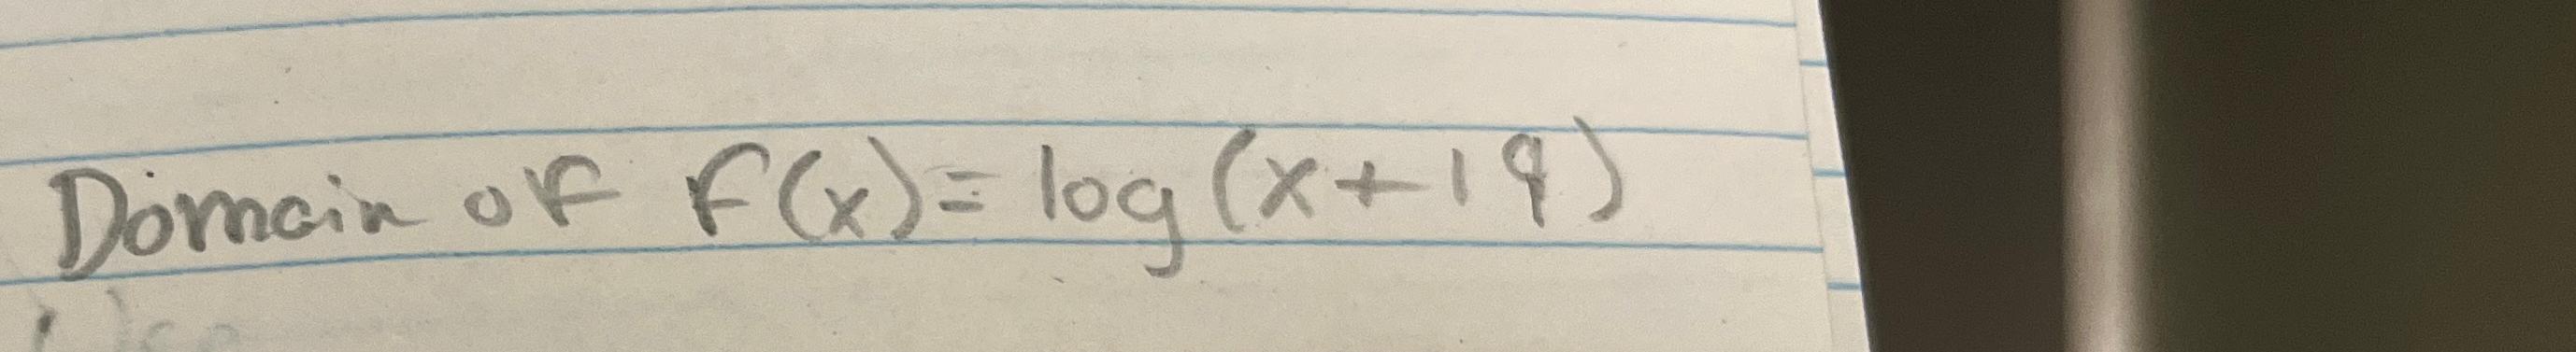 Domain of f(x) = log(x+19)